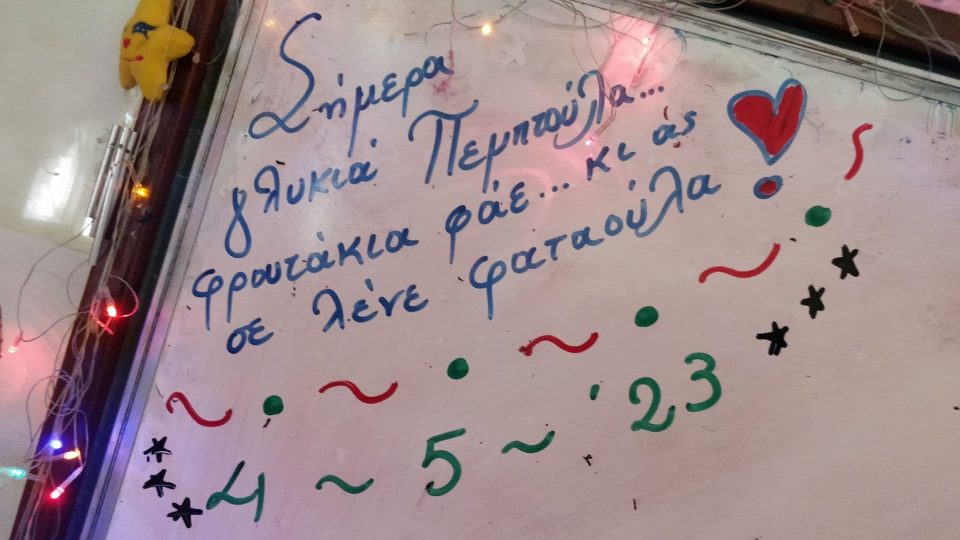 Σήμερα
γλυκιά Πεμπτούλα...
φρουτάκια φάε... κι ας
σε λένε φαταούλα
4 ~ 5 ~ '23